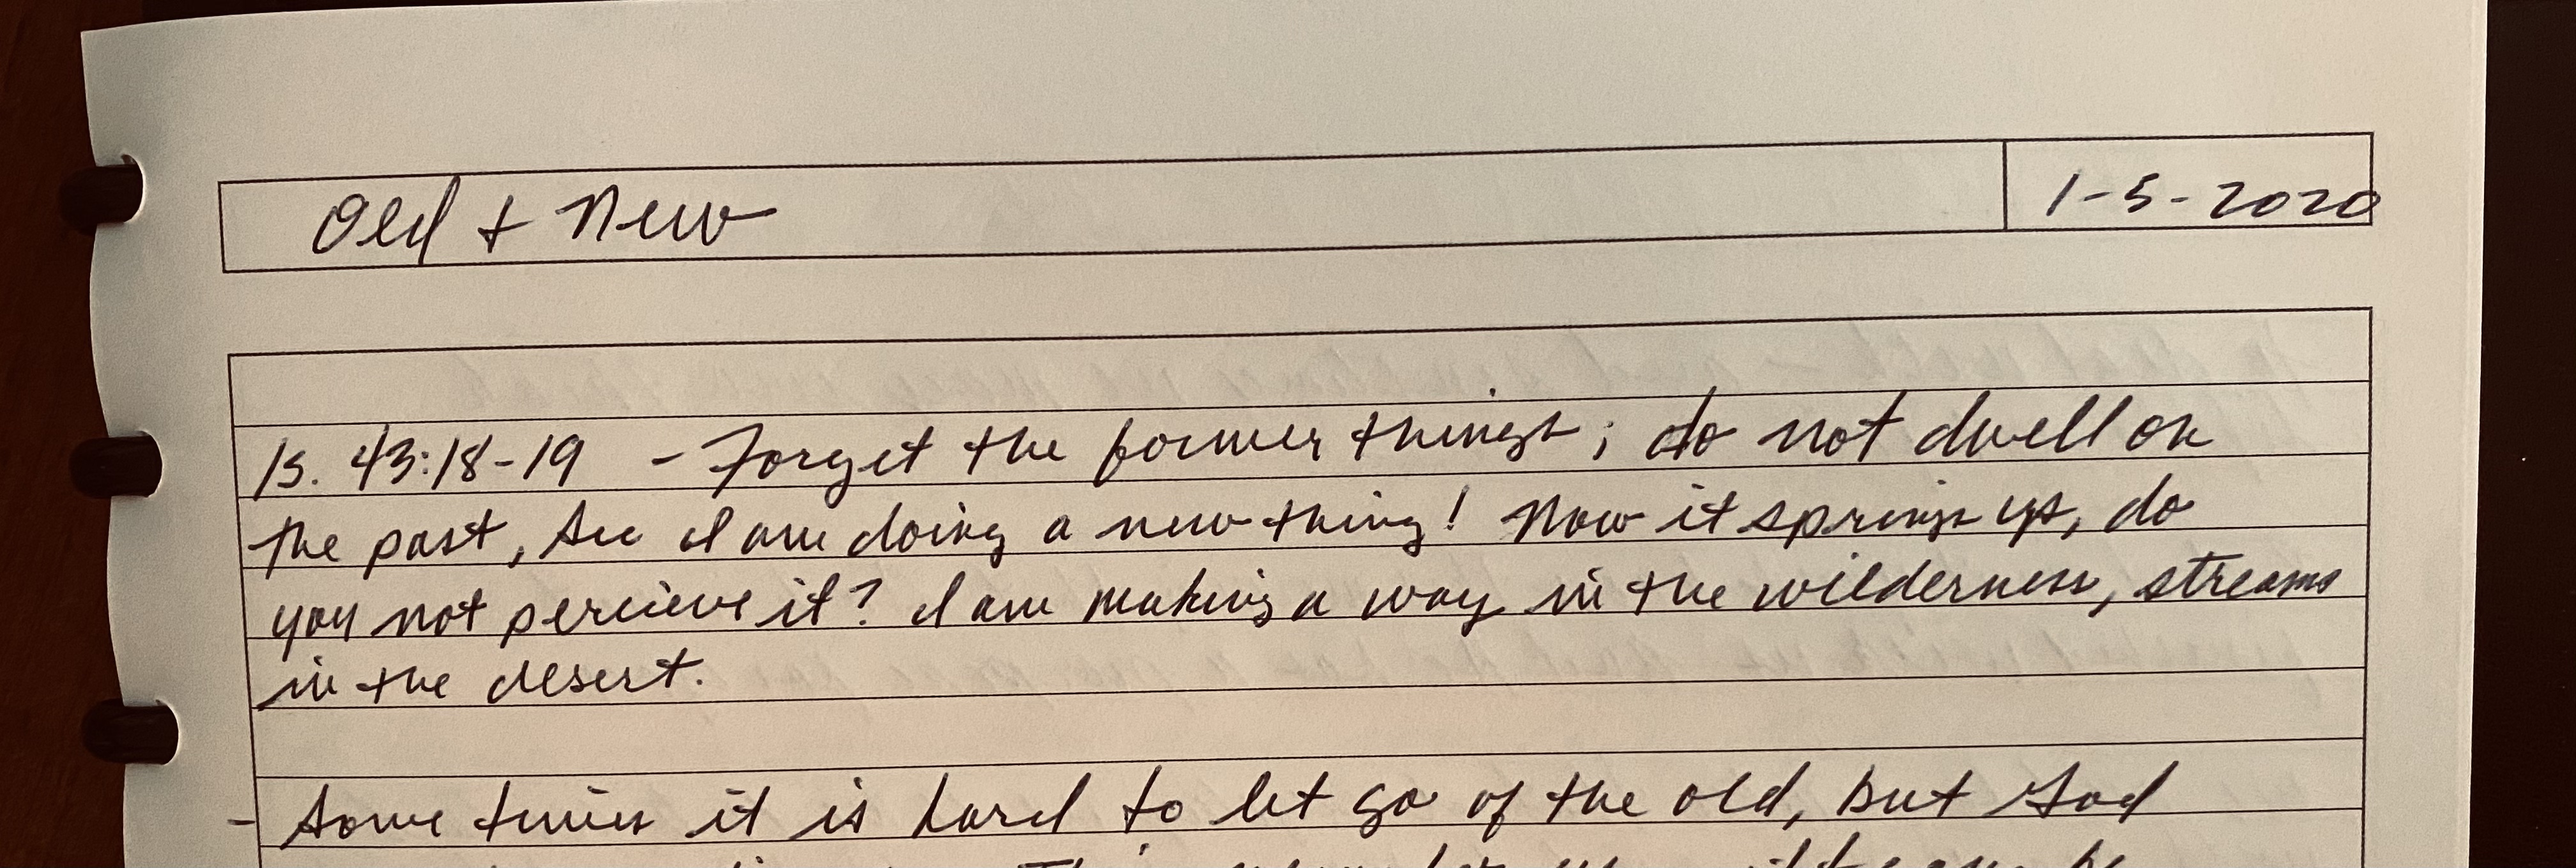 Old + New
1-5-2020
Is. 43:18-19 - Forget the former things; do not dwell on
the past, See I am doing a new thing! Now it springs up, do
you not percieve it? I am making a way in the wilderness, streams
in the desert.
- Some times it is hard to let go of the old, but God